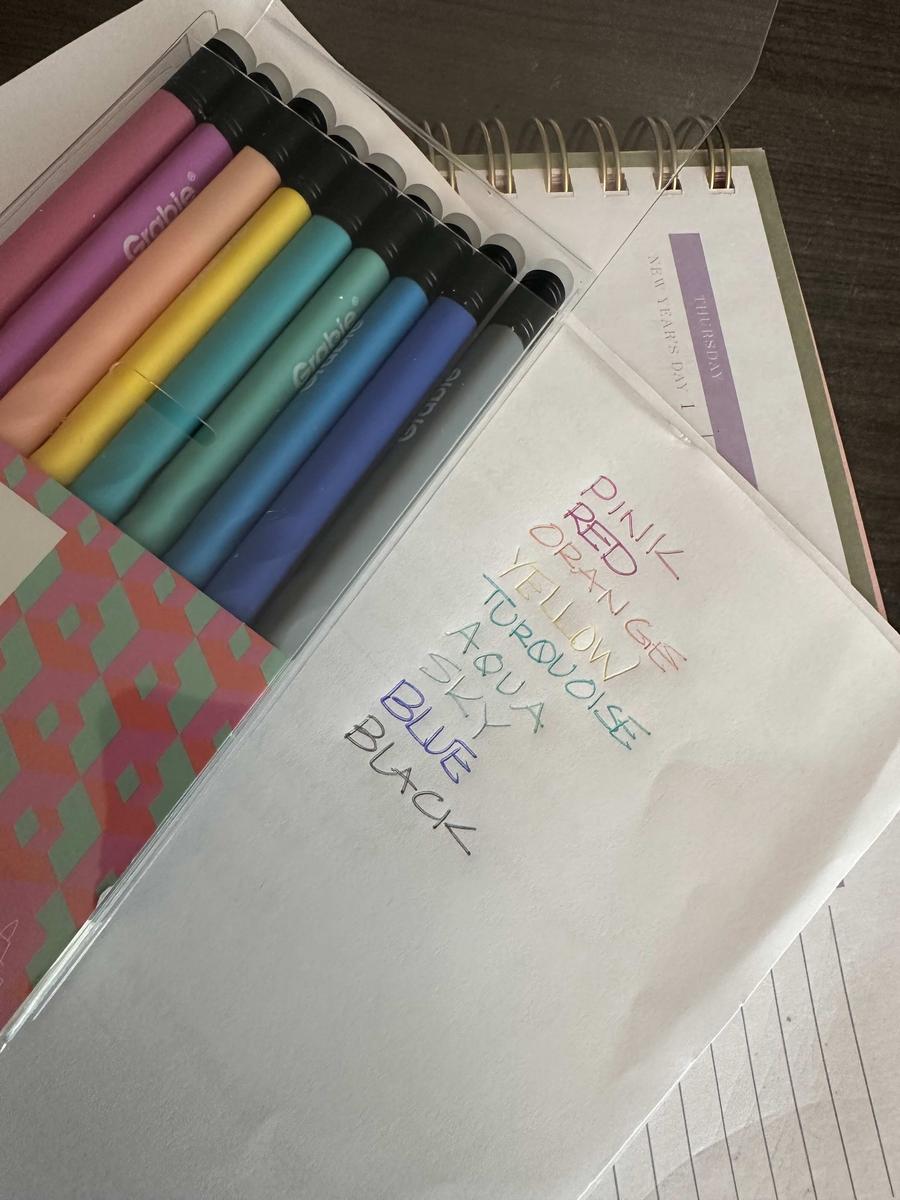 Grabie®
Grabie®
Grabie
THURSDAY
NEW YEAR'S DAY 1
PINK
RED
ORANGE
YELLOW
TURQUOISE
AQUA
SKY
BLUE
BLACK